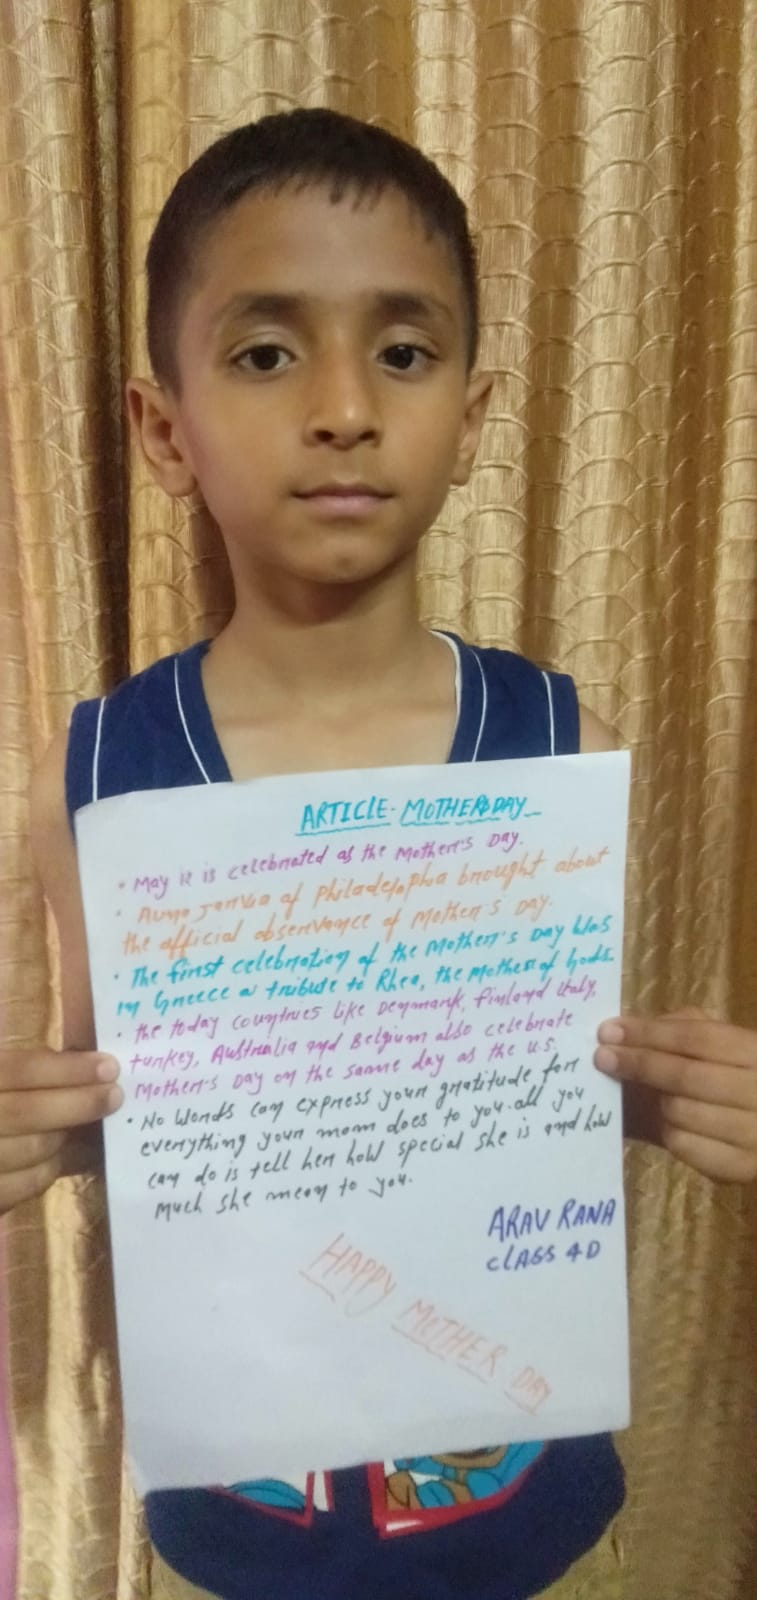 ARTICLE- MOTHERSDAY
• May 12 is celebrated as the Mother's Day.
• Anna Jarvia of Philadelophia brought about
the official observance of Mother's Day.
• The first celebration of the Mother's Day was
in Greece a tribute to Rhea, the mother of Gods.
• the today countries like Denmark, Finland Italy,
turkey, Australia and Belgium also celebrate
Mother's Day on the same day as the U.S.
• No words can express your gratitude for
everything your mom does to you. all you
can do is tell her how special she is and how
much she mean to you.
ARAV RANA
CLASS 4D
HAPPY MOTHER DAY